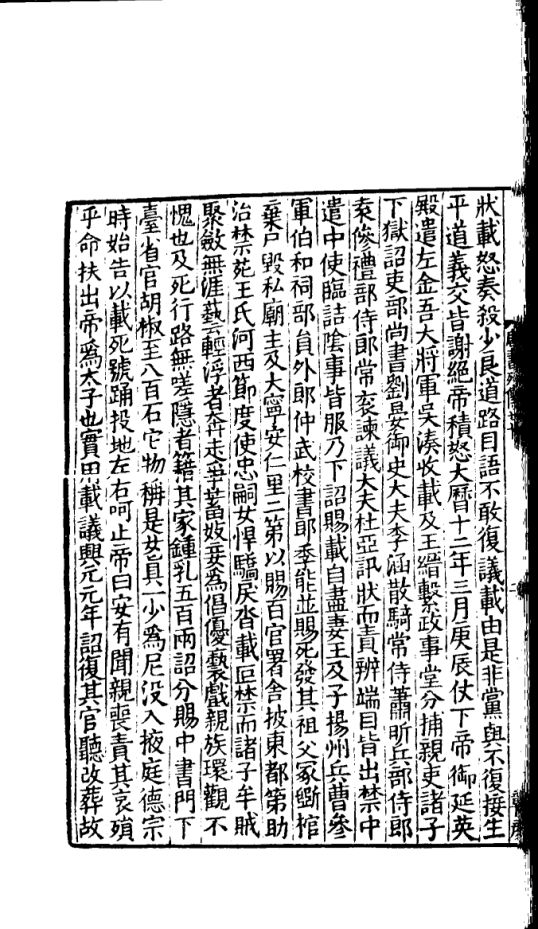 狀載怒奏殺少良道路目語不敢復議載由是非黨與不復接生
平道義交皆謝絕帝積怒大曆十二年三月庚辰仗下帝御延英
殿遣左金吾大將軍吳湊收載及王縉繫政事堂分捕親吏諸子
下獄詔吏部尚書劉晏御史大夫李涵散騎常侍蕭昕兵部侍郎
袁傪禮部侍郎常袞諫議大夫杜亞訊狀而責辨端目皆出禁中
遣中使臨詰陰事皆服乃下詔賜載自盡妻王及子揚州兵曹參
軍伯和祠部員外郎仲武校書郎季能並賜死發其祖父冢斲棺
棄尸毀私廟主及大寧安仁里二第以賜百官署舍披東都第助
治禁苑王氏河西節度使忠嗣女悍驕戾沓載叵禁而諸子牟賊
聚斂無涯藝輕浮者奔走爭蓄妓妾為倡優褻戲親族環觀不
愧也及死行路無嗟隱者籍其家鍾乳五百兩詔分賜中書門下
臺省官胡椒至八百石它物稱是女真一少為尼沒入掖庭德宗
時始告以載死號踊投地左右呵止帝曰安有聞親喪責其哀殞
乎命扶出帝為太子也實用載議興元元年詔復其官聽改葬故